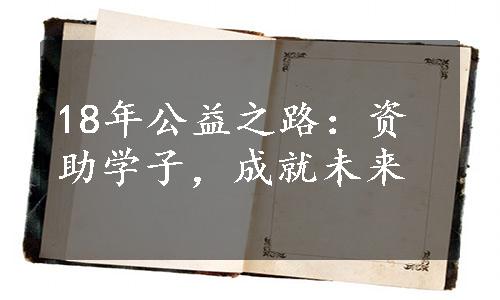 18年公益之路：资
助学子，成就未来